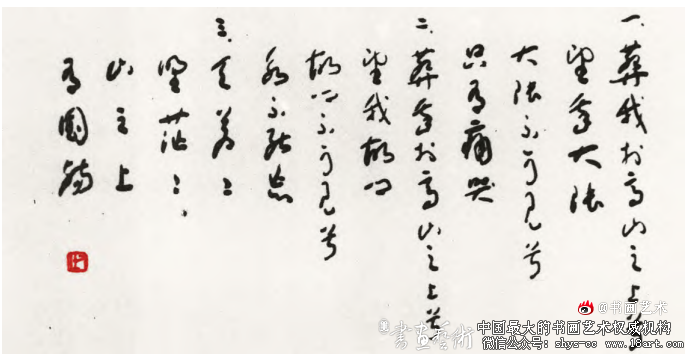 一、葬我於高山之上兮
望余大陸
大陸不可見兮
只有痛哭
二、葬余於高山之上兮
望我故鄉
故鄉不可見兮
永不能忘
三、天蒼〻
野茫〻、
山之上
有國殤
@书画艺术
書画藝術
中国最大的书画艺术权威机构
微信公众号: shys-cc www.18art.com